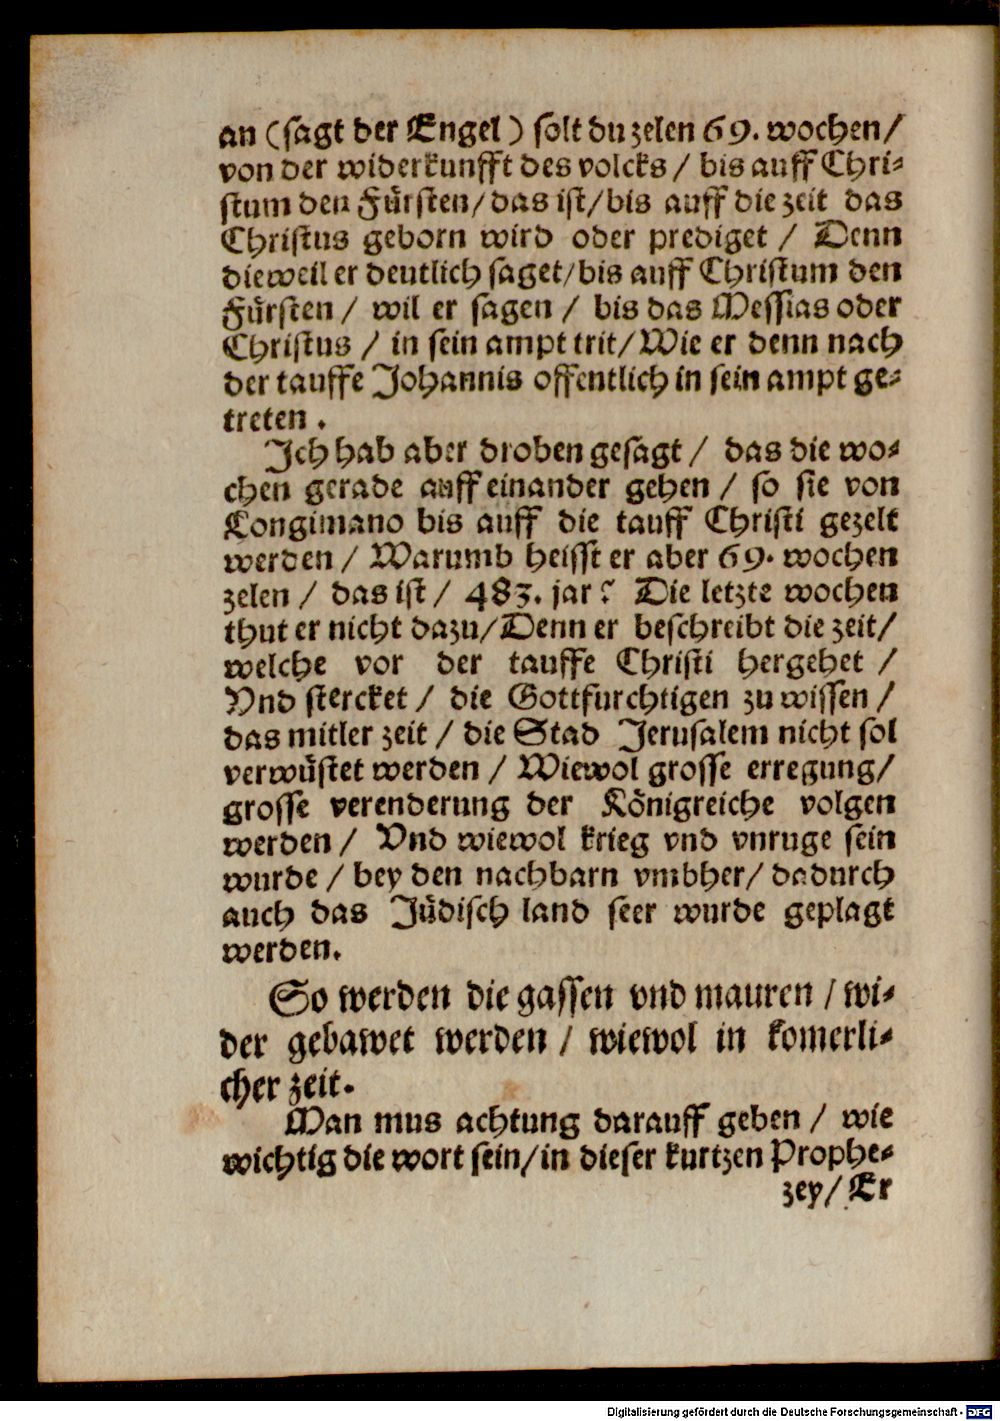 an (sagt der Engel) solt du zelen 69. wochen/
von der widerkunfft des volcks / bis auff Chri-
stum den Fürsten/das ist/bis auff die zeit das
Christus geborn wird oder prediget / Denn
dieweil er deutlich saget/bis auff Christum den
Fürsten / wil er sagen / bis das Messias oder
Christus / in sein ampt trit/Wie er denn nach
der tauffe Johannis offentlich in sein ampt ge-
treten.
Ich hab aber droben gesagt / das die wo-
chen gerade auff einander gehen / so sie von
Longimano bis auff die tauff Christi gezelt
werden / Warumb heisst er aber 69. wochen
zelen / das ist / 483. jar? Die letzte wochen
thut er nicht dazu/Denn er beschreibt die zeit/
welche vor der tauffe Christi hergehet /
Vnd stercket / die Gottfurchtigen zu wissen /
das mitler zeit / die Stad Jerusalem nicht sol
verwüstet werden / Wiewol grosse erregung/
grosse verenderung der Königreiche volgen
werden / Vnd wiewol krieg vnd vnruge sein
wurde / bey den nachbarn vmbher/ dadurch
auch das Jüdisch land seer wurde geplagt
werden.
So werden die gassen vnd mauren / wi-
der gebawet werden / wiewol in komerli-
cher zeit.
Man mus achtung darauff geben / wie
wichtig die wort sein/in dieser kurtzen Prophe-
zey/ Er
Digitalisierung gefördert durch die Deutsche Forschungsgemeinschaft - DFG